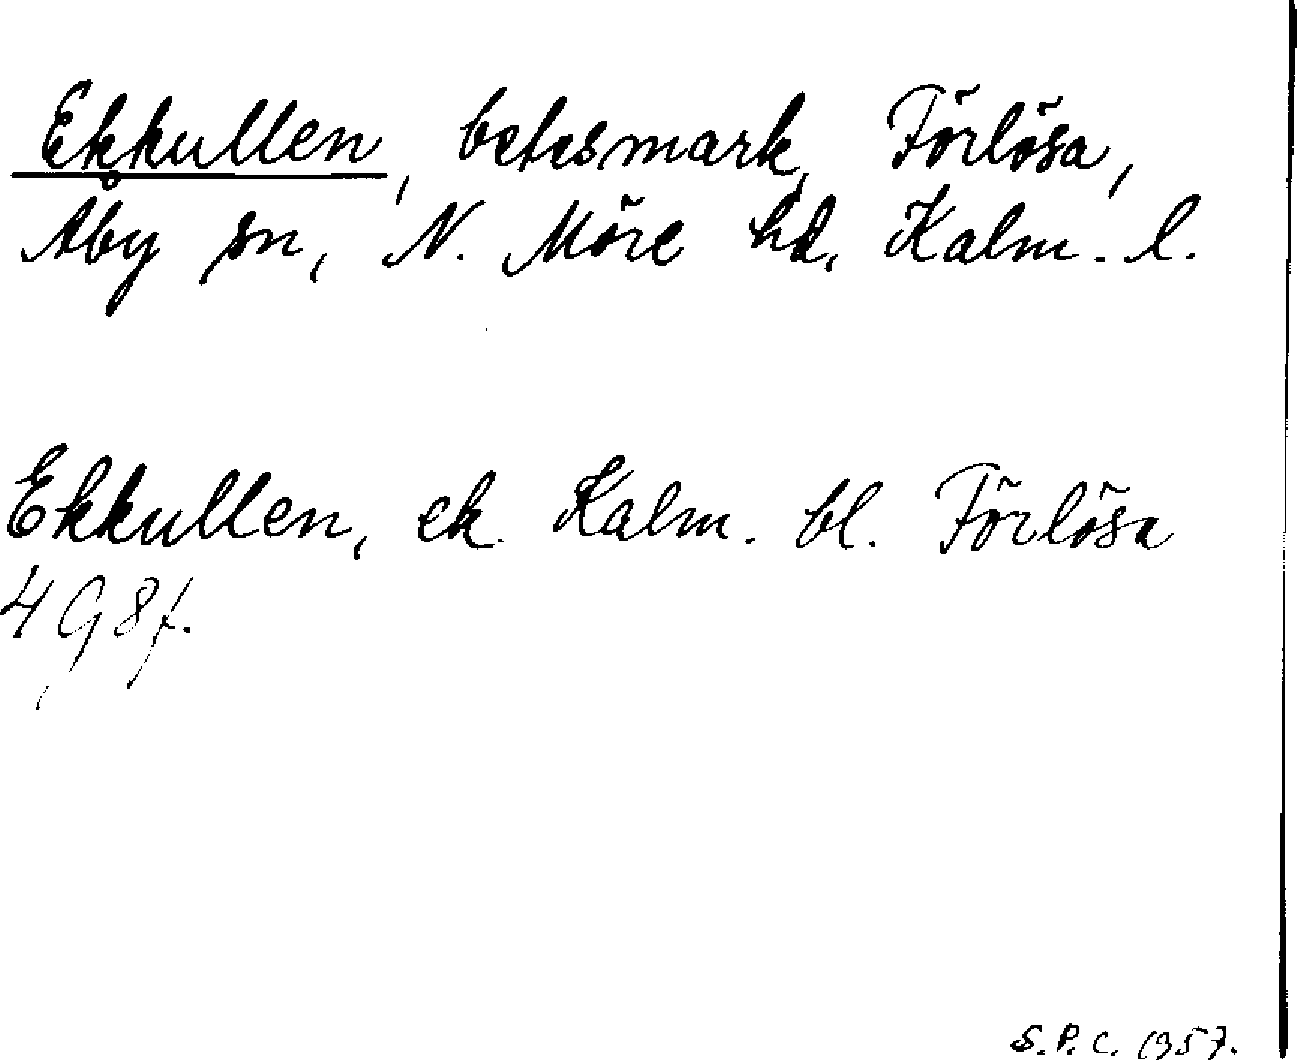 Ekkullen, betesmark, Förlösa,
Åby sn, N. Möre hd, Kalm. l.
Ekkullen, ek. Kalm. bl. Förlösa
4 G 8 f.
S. P. C. 1957.